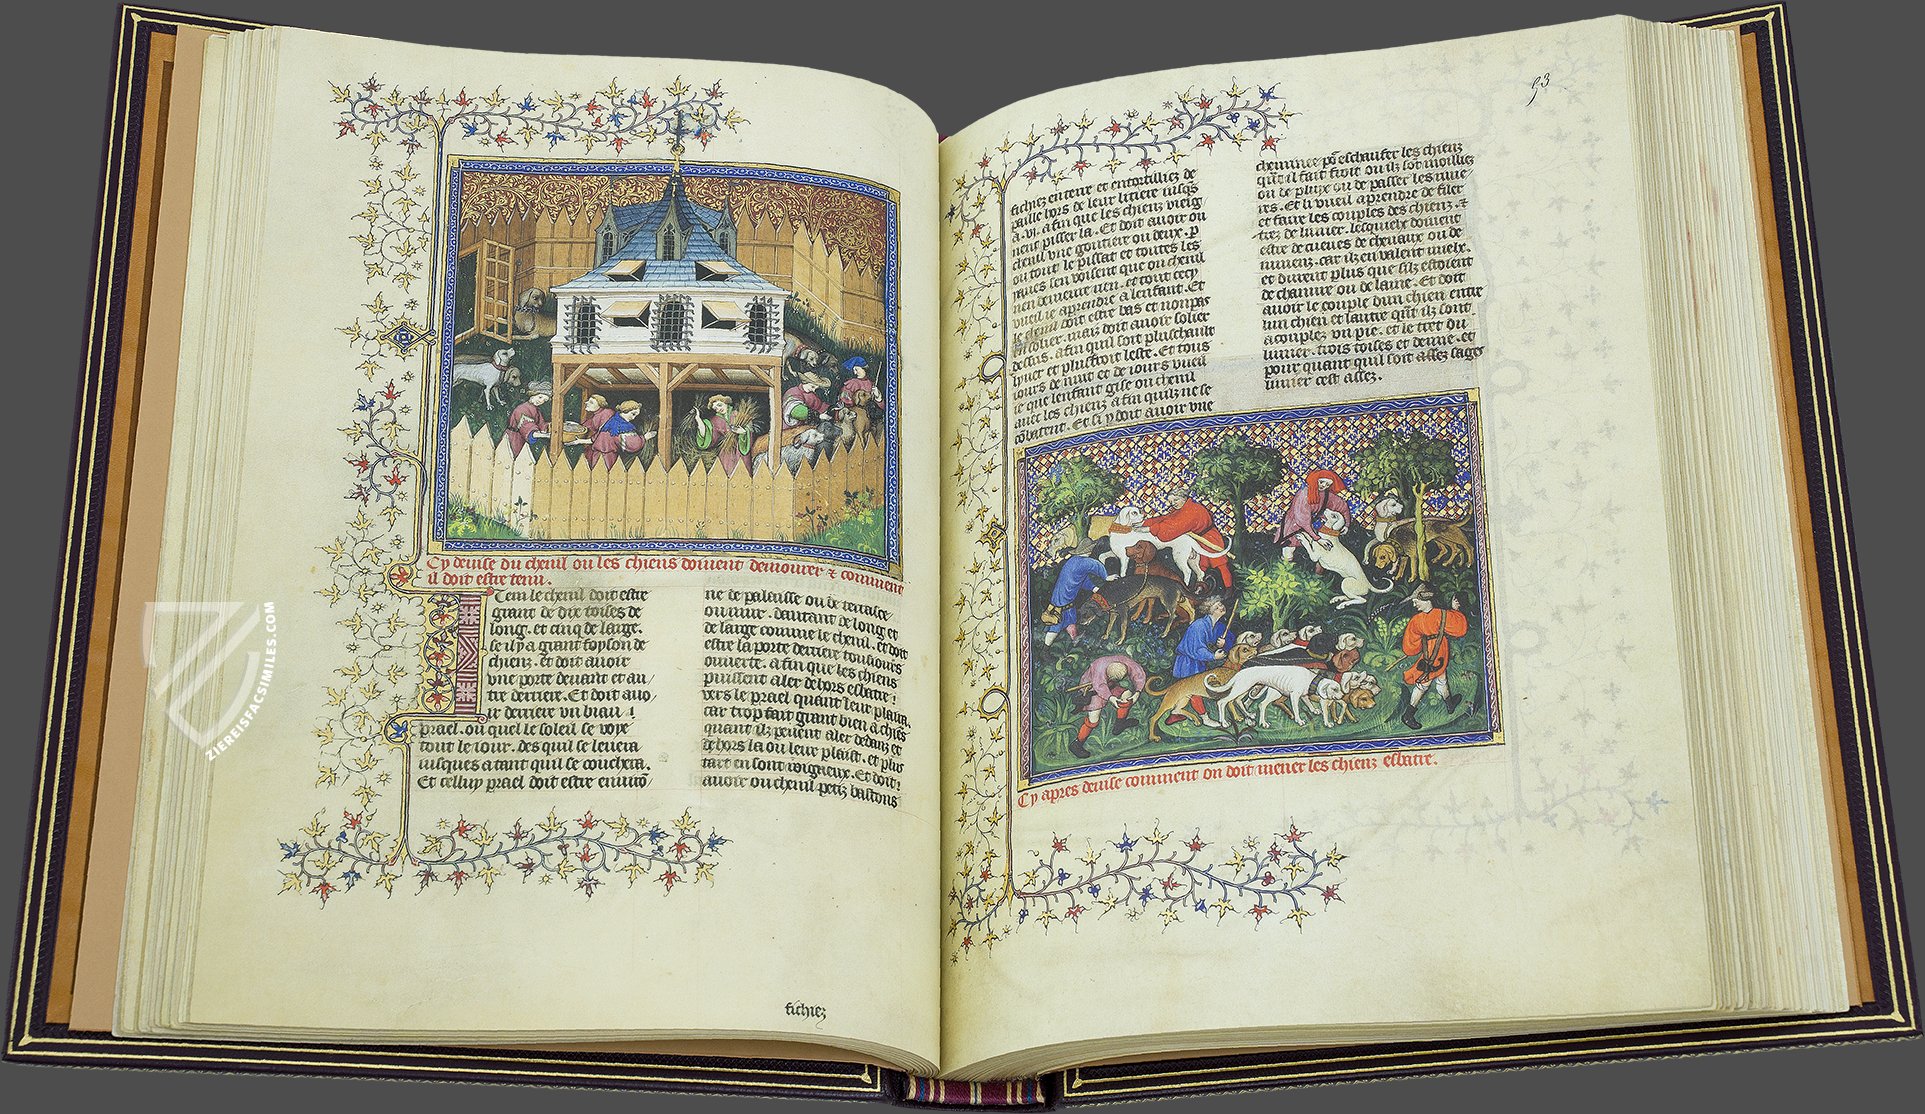 Cy devise du chenil ou les chiens doivent demourer & comment
il doit estre tenu.
Tem le chenil doit estre
grant de dix toises de
long. et cinq de large.
se il y a grant foyson de
chienz. et doit avoir
une porte devant et au/
tre derriere. Et doit avo/
ir derriere un biau
prael. ou quel le soleil se voye
tout le iour. des quil se levera
iusques a tant quil se couchera.
Et celluy prael doit estre enviro/
ne de paleisse ou de
ou mur. dautant de long et
de large comme le chenil. et doit
estre la porte derriere tousiours
ouverte. a fin que les chiens
puissent aler dehors esbatre
vers le prael quant leur plaira.
car trop fait grant bien a chiens
quant ilz peuent aler dedanz et
dehors la ou leur plaist. et plus
tart en sont roigneux. Et doit
avoir ou chenil petiz bastons
fichiez
93
fichiez en terre et entortilliez de
paille hors de leur litiere iusqs
a .vi. a fin que les chienz vieig/
nent pisser la. Et doit avoir ou
chenil une goutiere ou deux. p
ou tout le pissat et toutes les
yaues sen voisent que ou chenil
nen demeure rien. et tout cecy
vueil ie aprendre a lenfant. Et
le chenil doit estre bas et non pas
en solier. maiz doit avoir solier
dessus. a fin quil soit plus chault
lyver et plus froit leste. et tous
iours de nuit et de iours vueil
ie que lenfant gise ou chenil
avec les chienz a fin quilz ne se
cobatent. Et si y doit avoir une
cheminee po eschaufer les chienz
qut il fait froit ou ilz sot moilliez
ou de pluye ou de passer les rivie/
res. Et li vueil aprendre de filer
et faire les couples des chienz. &
trez de limier. lesquielx doivent
estre de cueues de chevaux ou de
iumenz. car ilz en valent mielx.
et durent plus que silz estoient
de chanvre ou de laine. Et doit
avoir le couple dun chien entre
lun chien et lautre qut ilz sont
acouplez un pie. et le tret du
limier. trois toises et demie. et
pour quant quil soit assez sages
limier cest assez.
Cy apres devise comment on doit mener les chienz esbatre.
ZIEREISFACSIMILES.COM